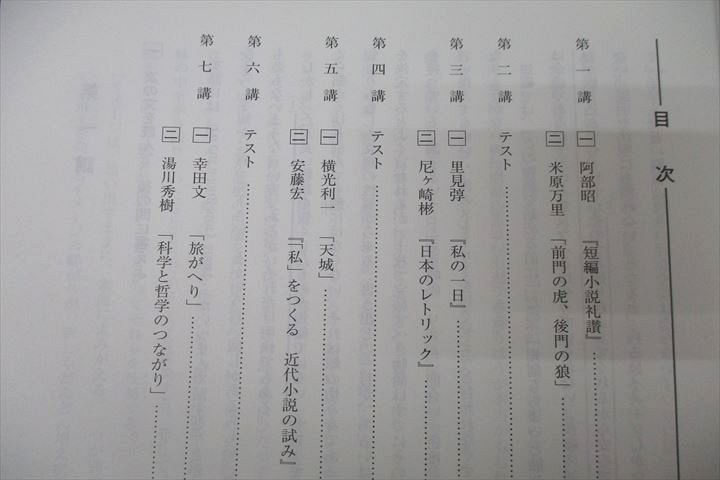 目次
第一講 一 阿部昭 『短編小説礼讃』
二 米原万里 「前門の虎、後門の狼」
第二講 テスト
第三講 一 里見弴 『私の一日』
二 尼ヶ崎彬 『日本のレトリック』
第四講 テスト
第五講 一 横光利一 「天城」
二 安藤宏 『「私」をつくる 近代小説の試み』
第六講 テスト
第七講 一 幸田文 「旅がへり」
二 湯川秀樹 「科学と哲学のつながり」